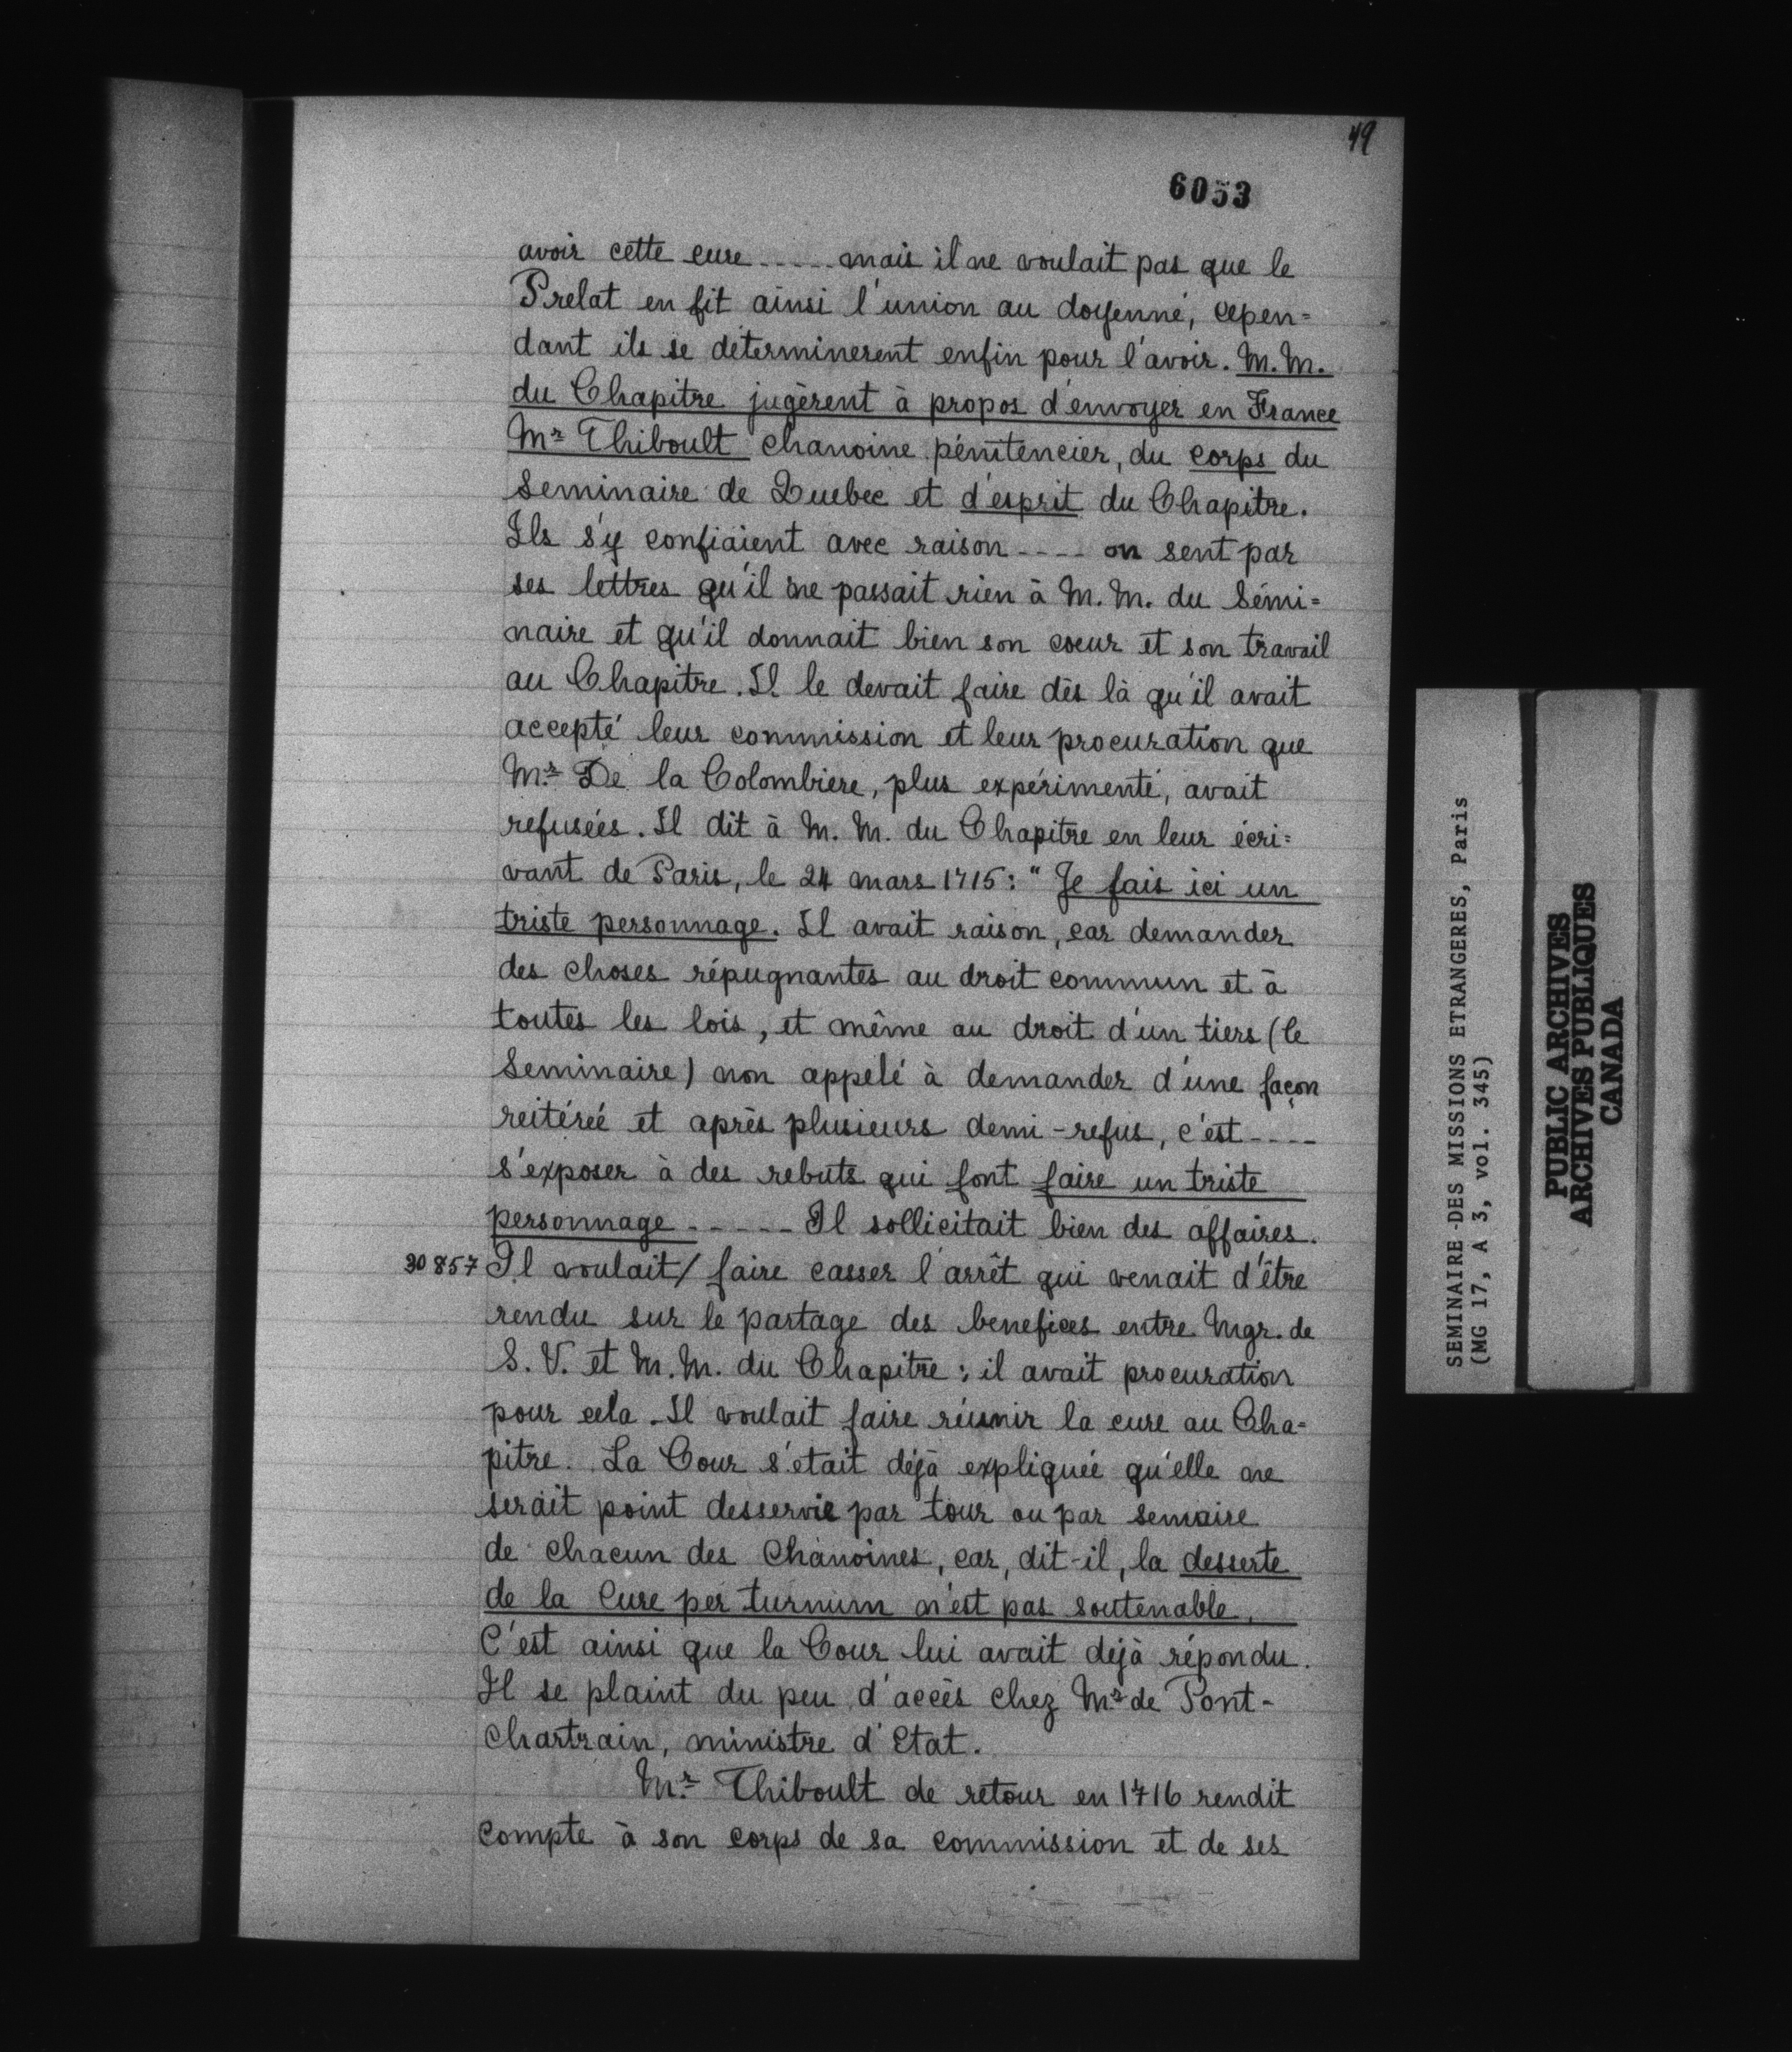 49
6053
avoir cette cure ..... mais il ne voulait pas que le
Prelat en fit ainsi l'union au doyenné, cepen=
dant ils se determinerent enfin pour l'avoir. M.M.
du Chapitre jugèrent à propos d'envoyer en France
Mr Thiboult chanoine pénitencier, du corps du
Seminaire de Quebec et d'esprit du Chapitre.
Ils s'y confiaient avec raison ---- on sent par
ses lettres qu'il ne passait rien à M. M. du Sémi=
naire et qu'il donnait bien son coeur et son travail
au Chapitre. Il le devait faire dès là qu'il avait
accepté leur commission et leur procuration que
Mr De la Colombiere, plus expérimenté, avait
refusées. Il dit à M. M. du Chapitre en leur écri=
vant de Paris, le 24 mars 1715: "Je fais ici un
triste personnage. Il avait raison, car demander
des choses répugnantes au droit commun et à
toutes les lois, et même au droit d'un tiers (le
Seminaire) non appelé à demander d'une façon
reitéréé et après plusieurs demi-refus, c'est ----
s'exposer à des rebuts qui font faire un triste
personnage ----- Il sollicitait bien des affaires.
30 857 Il voulait/ faire casser l'arrêt qui venait d'être
rendu sur le partage des benefices entre Mgr. de
S. V. et M. M. du Chapitre : il avait procuration
pour cela. Il voulait faire réunir la cure au Cha=
pitre. La Cour s'etait déjà expliquée qu'elle ne
serait point desservie par tour ou par semaire
de chacun des Chanoines, car, dit-il, la desserte
de la Cure per turnum n'est pas soutenable.
C'est ainsi que la Cour lui avait déjà répondu.
Il se plaint du peu d'accès chez Mr de Pont-
chartrain, ministre d'Etat.
Mr Thiboult de retour en 1716 rendit
compte à son corps de sa commission et de ses
SEMINAIRE DES MISSIONS ETRANGERES, Paris
(MG 17, A 3, vol. 345)
PUBLIC ARCHIVES
ARCHIVES PUBLIQUES
CANADA